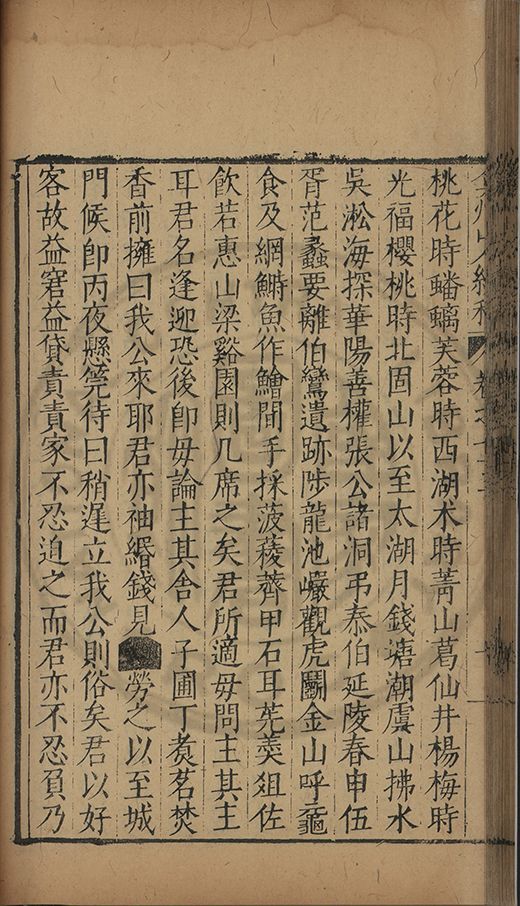 桃花時蟠螭芙蓉時西湖术時菁山葛仙井楊梅時
光福櫻桃時北固山以至太湖月錢塘潮虞山拂水
吳淞海探華陽善權張公諸洞弔泰伯延陵春申伍
胥范蠡要離伯鸞遺跡陟龍池巖觀虎鬭金山呼黿
食及網鰣魚作鱠間手採菠薐薺甲石耳芼羮俎佐
飲若惠山梁谿園則几席之矣君所適毋問主其主
耳君名逢迎恐後卽毋論主其舍人子圃丁煑茗焚
香前擁曰我公來耶君亦袖緡錢見勞之以至城
門候卽丙夜懸筦待曰稍遲立我公則俗矣君以好
客故益窘益貸責責家不忍迫之而君亦不忍負乃